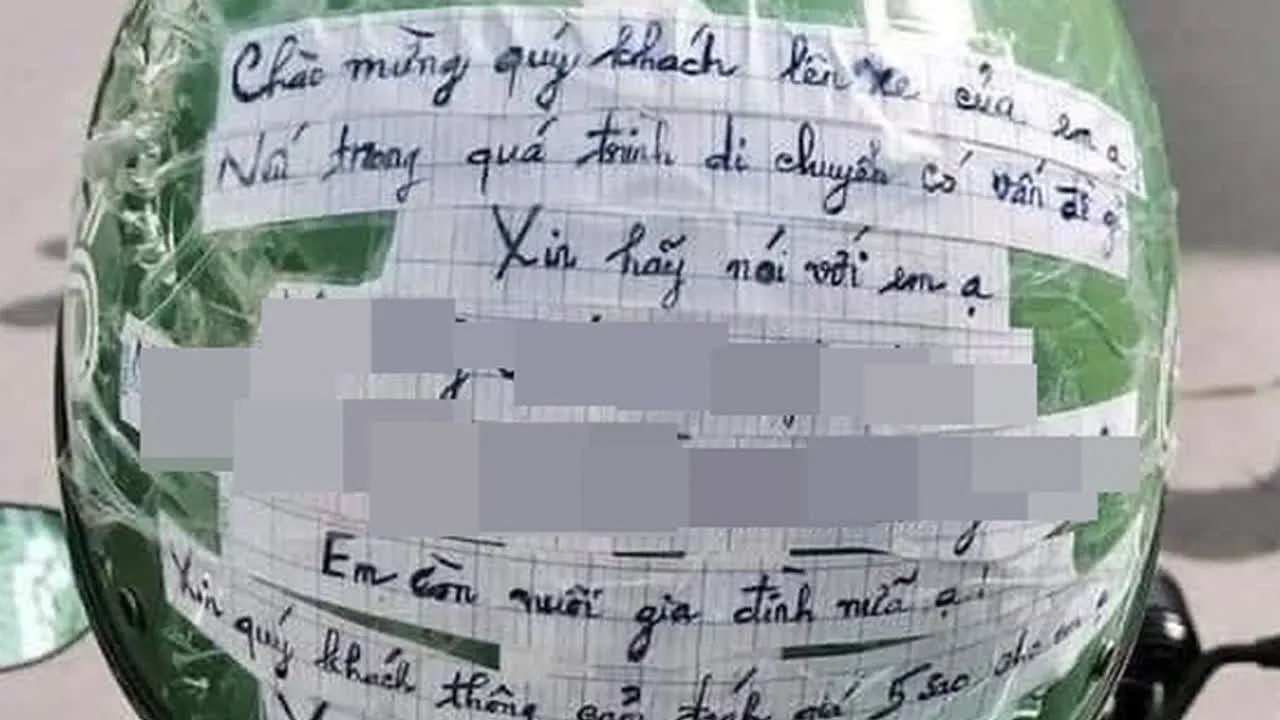 Chào mừng quý khách lên xe của em ạ
Nếu trong quá trình di chuyển có vấn đề gì
Xin hãy nói với em ạ
Em còn nuôi gia đình nữa ạ!
Xin quý khách thông cảm đánh giá 5 sao cho em ạ